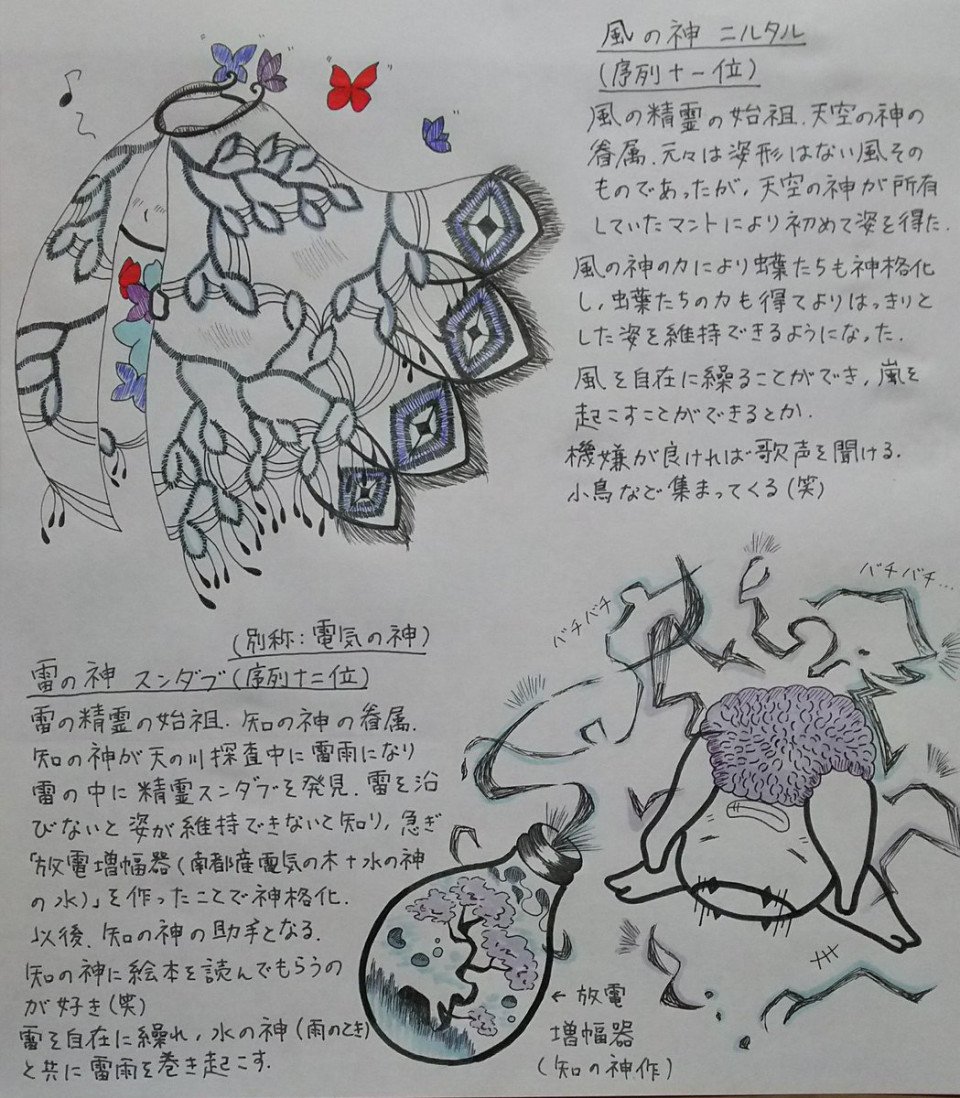 風の神 ニルタル
(序列十一位)
風の精霊の始祖.天空の神の
眷属.元々は姿形はない風その
ものであったが,天空の神が所有
していたマントにより初めて姿を得た.
風の神の力により蝶たちも神格化
し,蝶たちの力も得てよりはっきりと
した姿を維持できるようになった.
風を自在に繰ることができ,嵐を
起こすことができるとか.
機嫌が良ければ歌声を聞ける.
小鳥など集まってくる(笑)
バチバチ
バチバチ...
(別称:電気の神)
雷の神 スンダブ(序列十二位)
雷の精霊の始祖.知の神の眷属.
知の神が天の川探査中に雷雨になり
雷の中に精霊スンダブを発見.雷を浴
びないと姿が維持できないと知り,急ぎ
「放電増幅器(南都産電気の木+水の神
の水)」を作ったことで神格化.
以後,知の神の助手となる.
知の神に絵本を読んでもらうの
が好き(笑)
雷を自在に繰れ,水の神(雨のとき)
と共に雷雨を巻き起こす.
←放電
増幅器
(知の神作)